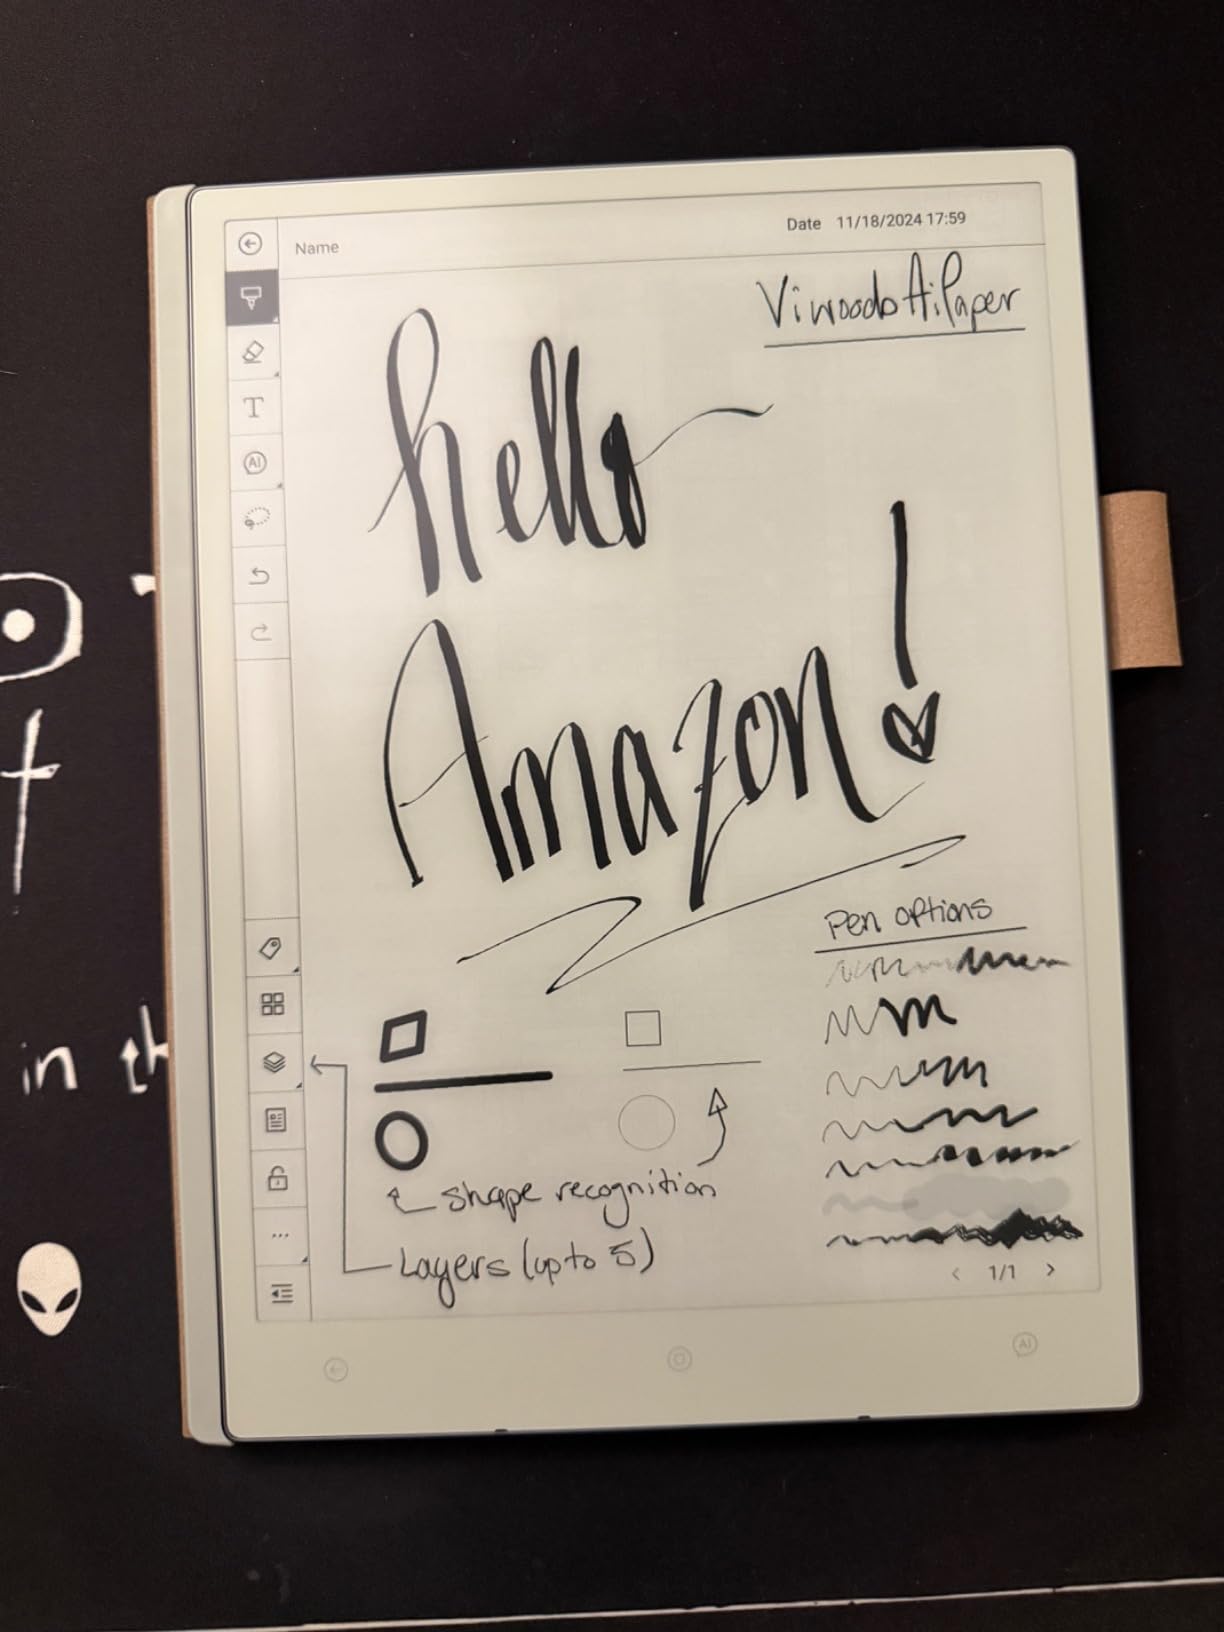 Name
Date 11/18/2024 17:59
Viwoods AiPaper
hello
Amazon!
T
AI
Pen options
shape recognition
Layers (up to 5)
< 1/1 >
AI
in th